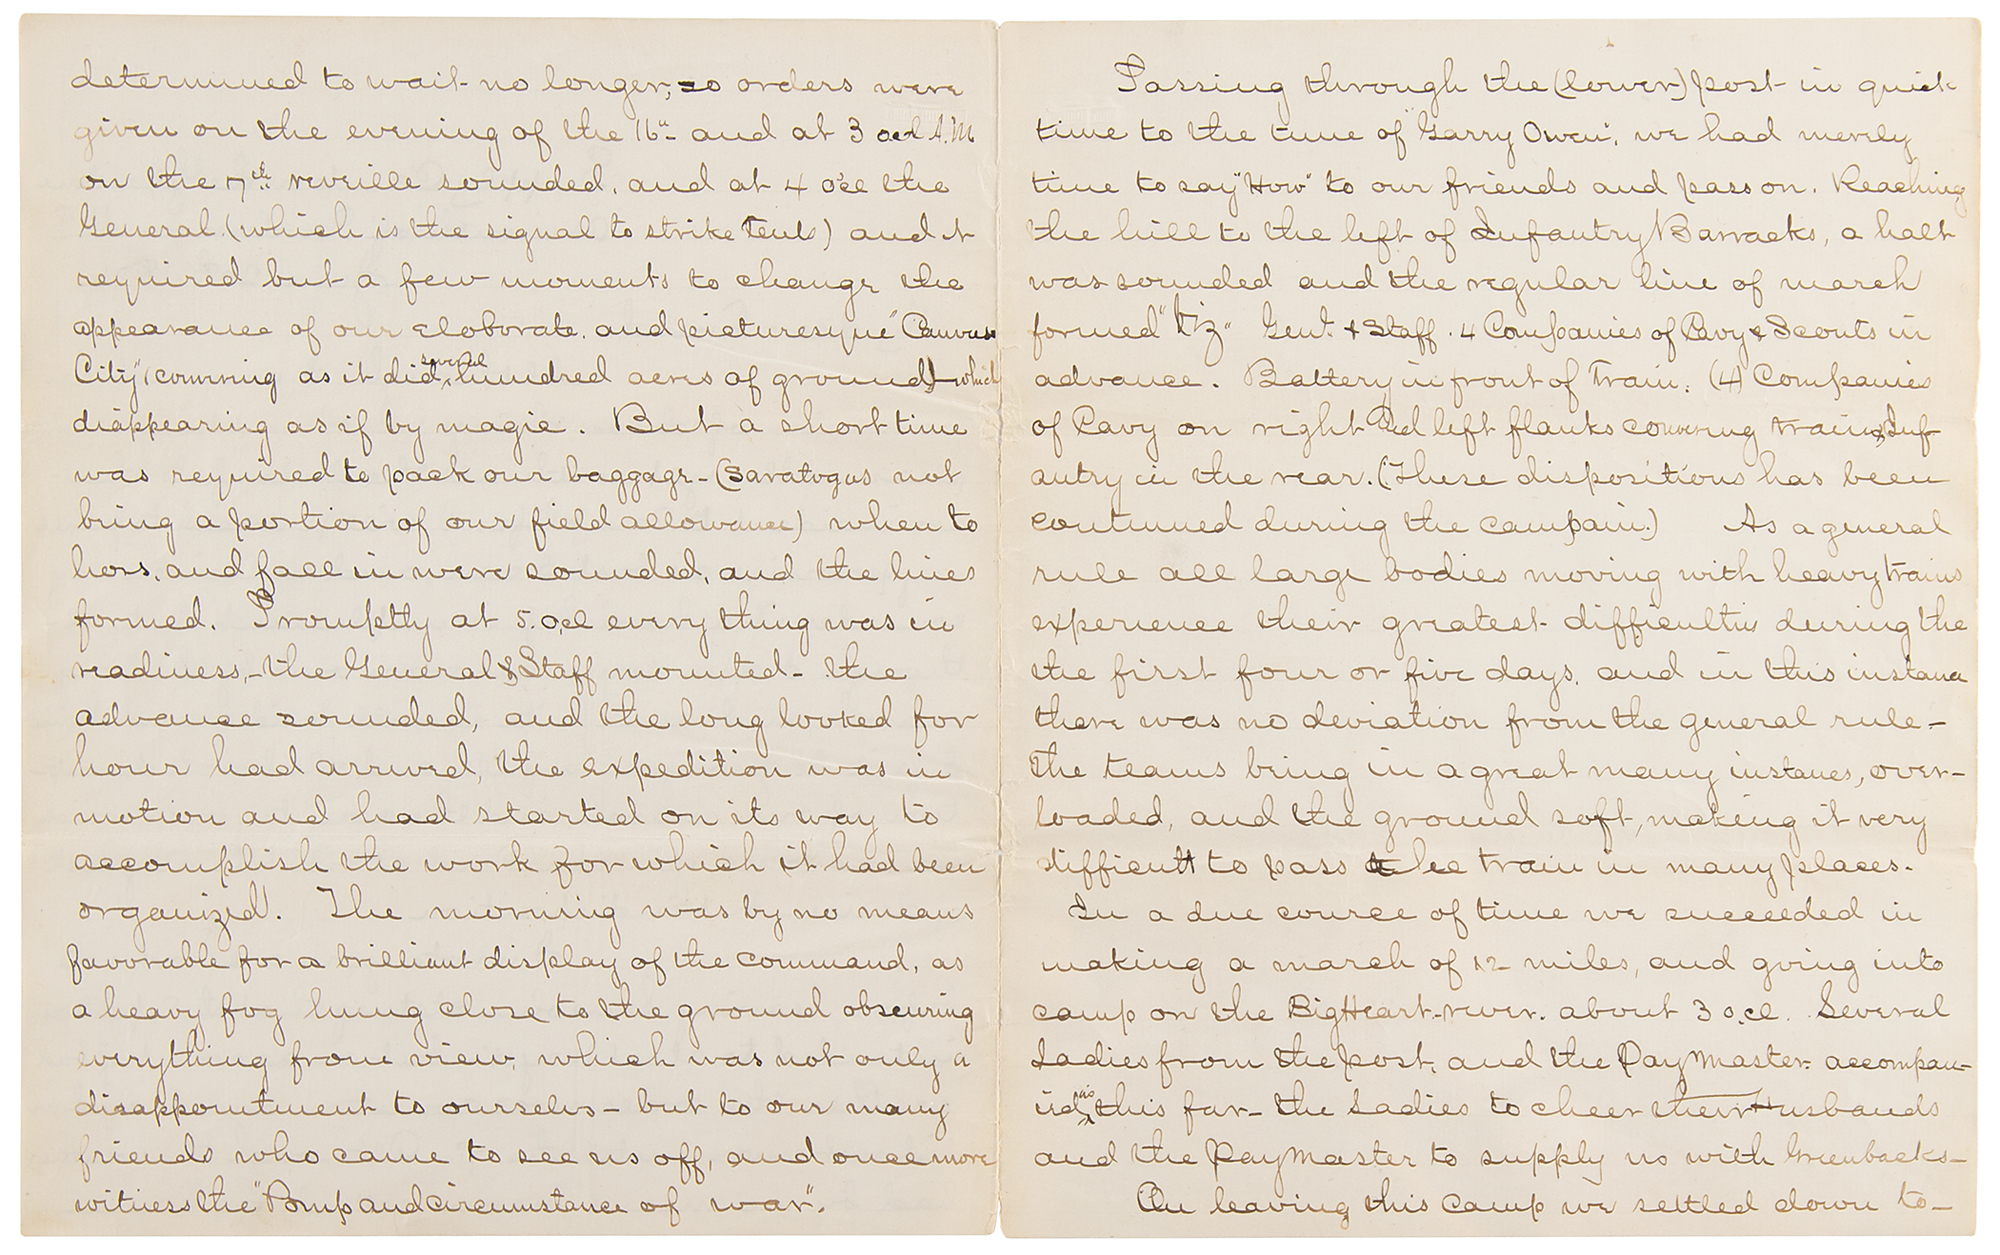 determined to wait no longer, so orders were
given on the evening of the 16" and at 3 ocl A.M
on the 7th reveille sounded, and at 4 ocl the
General (which is the signal to strike tents) and it
required but a few moments to change the
appearance of our eloborate, and picturesque "Canvas
City" (covering as it did several hundred acres of ground) which
disappearing as if by magic. But a short time
was required to pack our baggage - (Saratogas not
being a portion of our field allowance) when to
hors, and fall in were sounded, and the lines
formed. Promptly at 5. ocl every thing was in
readiness, - the General & Staff mounted - the
advance sounded, and the long looked for
hour had arrived, the expedition was in
motion and had started on its way to
accomplish the work for which it had been
organized. The morning was by no means
favorable for a brilliant display of the command, as
a heavy fog hung close to the ground obscuring
everything from view, which was not only a
disappointment to ourselvs - but to our many
friends who came to see us off, and once more
witness the "Pomp and circumstance of war".
Passing through the (lower) post in quick
time to the tune of "Garry Owen", we had merely
time to say "How" to our friends and pass on. Reaching
the hill to the left of Infantry Barracks, a halt
was sounded and the regular line of march
formed "Viz" Genl. & Staff. 4 Companies of Cavy & Scouts in
advance. Battery in front of Train. (4) Companies
of Cavy on right and left flanks covering train, Inf-
antry in the rear. (These dispositions has been
continued during the campain.) As a general
rule all large bodies moving with heavy trains
experience their greatest difficultis during the
the first four or five days, and in this instance
there was no deviation from the general rule -
the teams being in a great many instances, over-
loaded, and the ground soft, making it very
difficult to pass the train in many places.
In a due course of time we succeeded in
making a march of 12 miles, and going into
camp on the Big Heart-river. about 3 ocl. Several
Ladies from the post, and the PayMaster accompan-
ied us this far - the Ladies to cheer their Husbands
and the PayMaster to supply us with Greenbacks -
On leaving this Camp we settled down to -